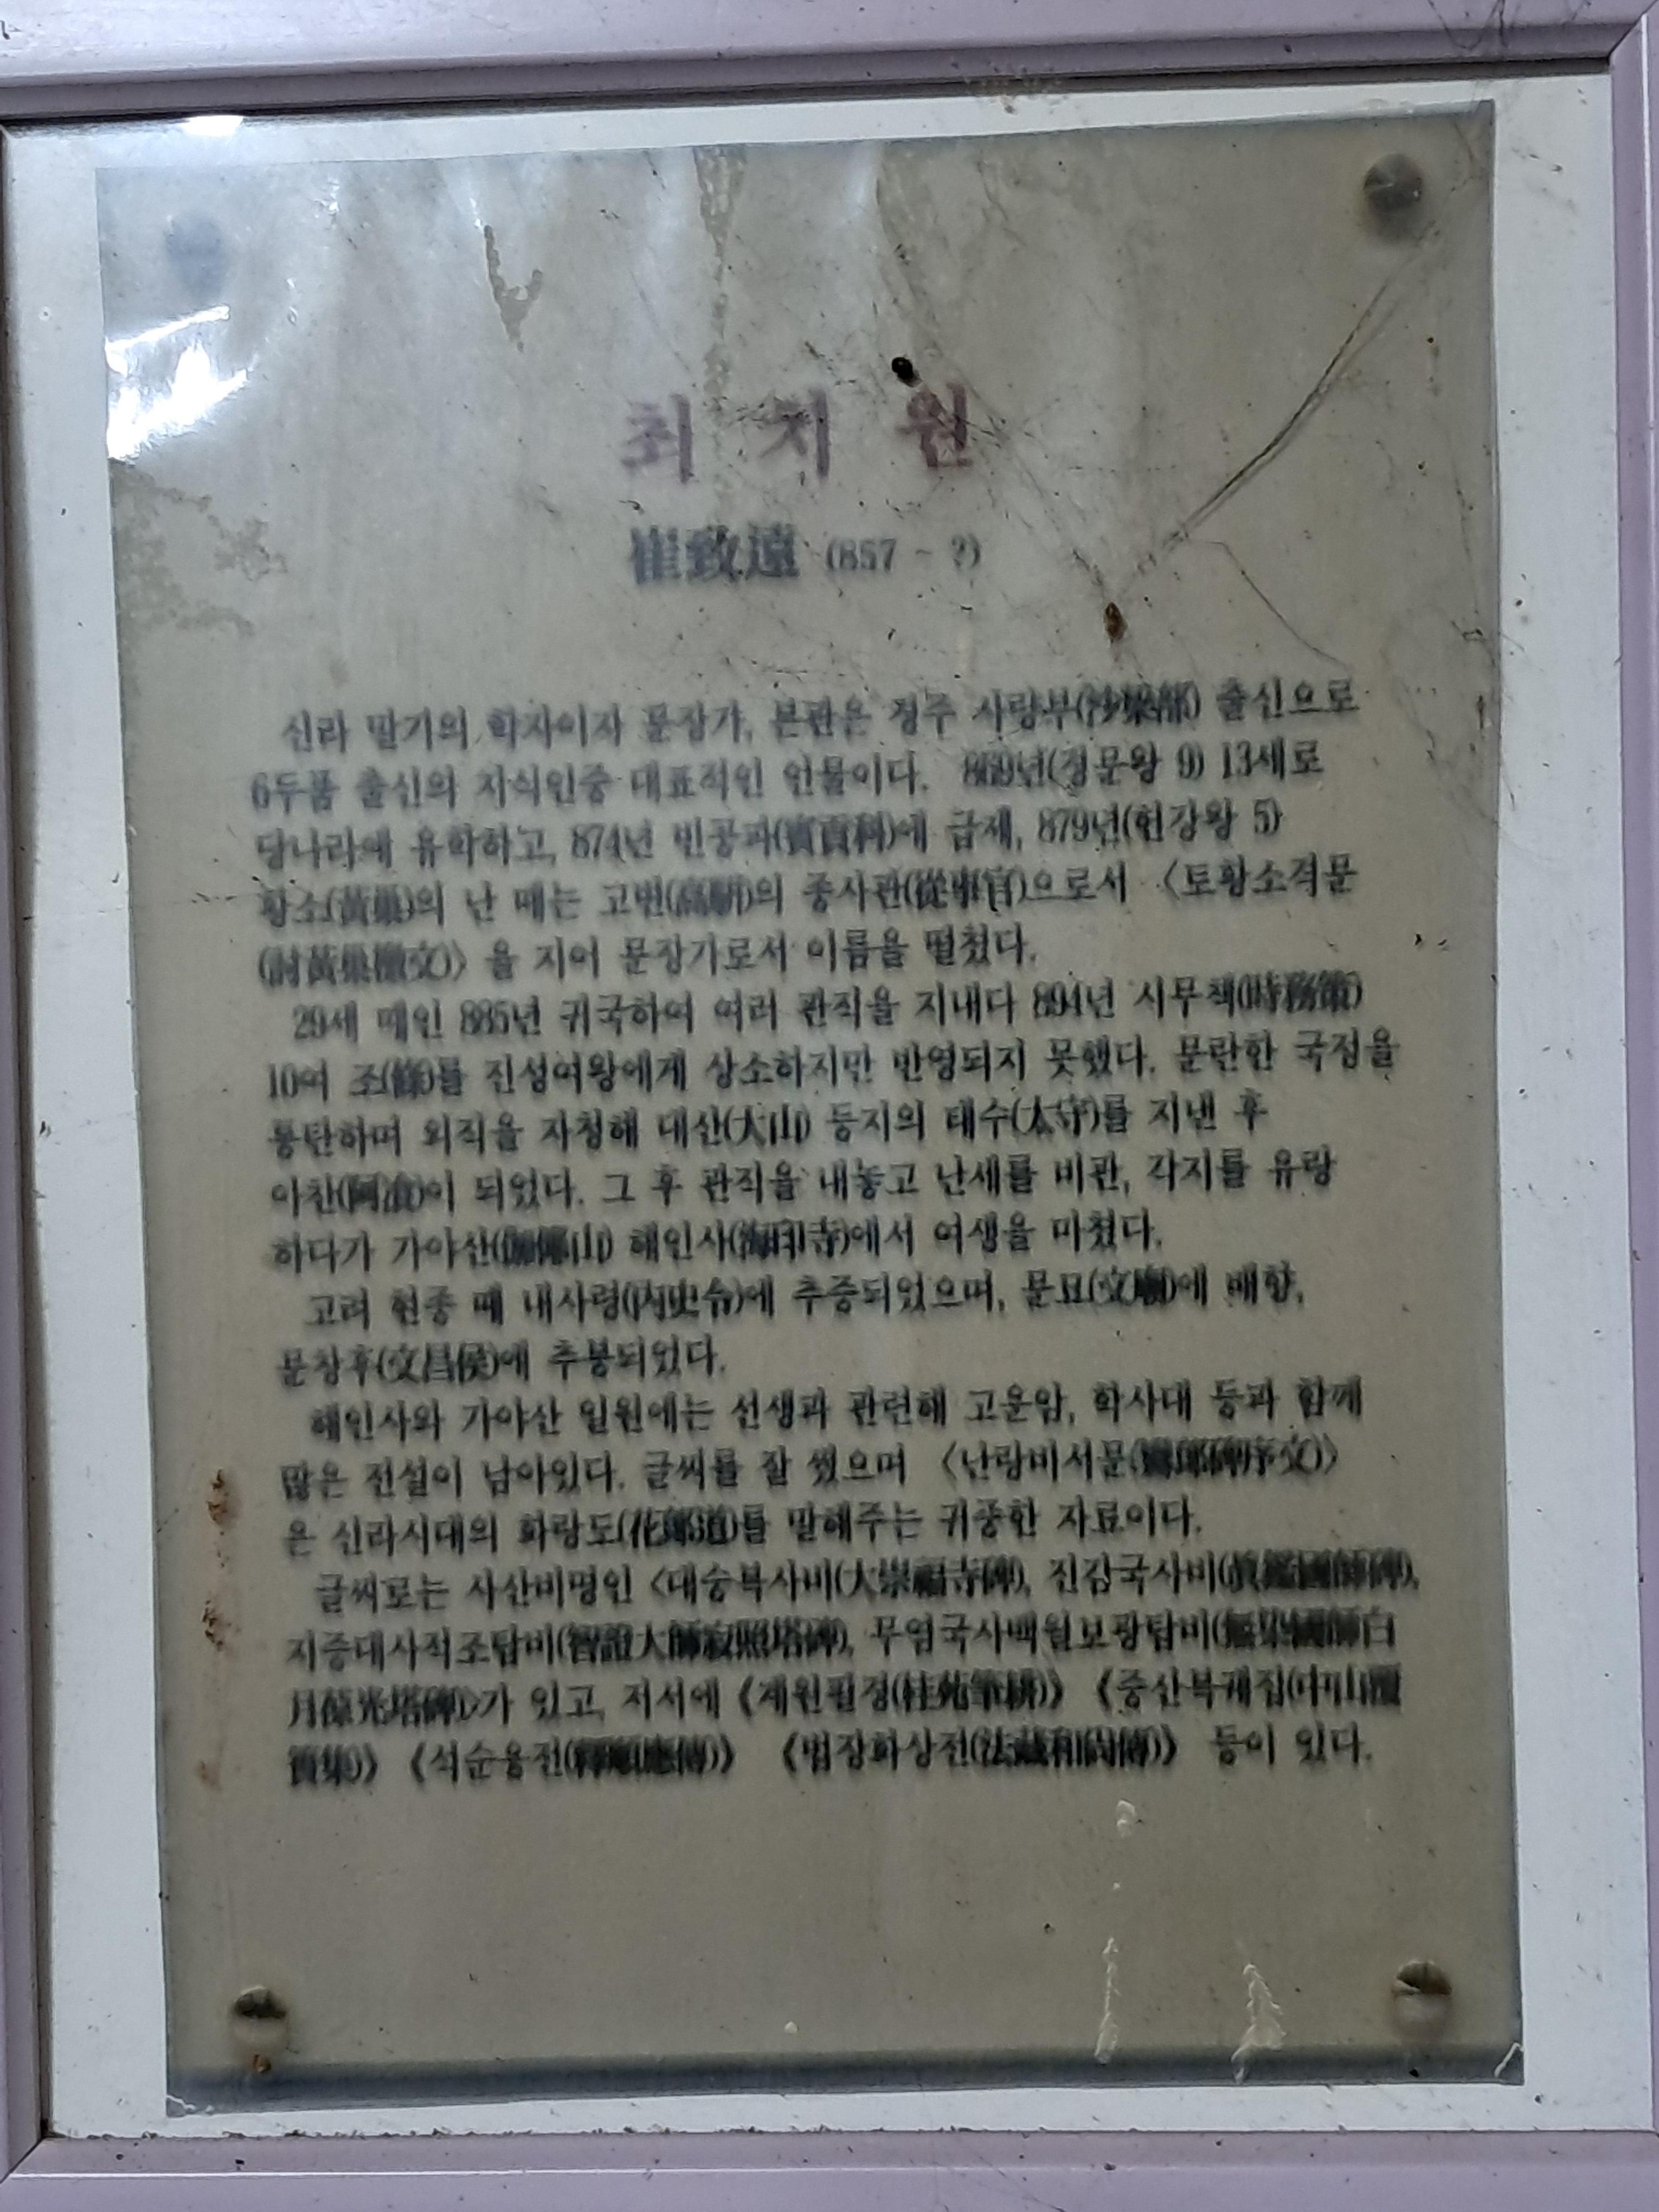 최 치 원
崔致遠 (857 ~ ?)
신라 말기의 학자이자 문장가, 본관은 경주 사량부(沙梁部) 출신으로
6두품 출신의 지식인중 대표적인 인물이다. 869년(경문왕 9) 13세로
당나라에 유학하고, 874년 빈공과(賓貢科)에 급제, 879년(헌강왕 5)
황소(黃巢)의 난 때는 고변(高騈)의 종사관(從事官)으로서 〈토황소격문
(討黃巢檄文)〉을 지어 문장가로서 이름을 떨쳤다.
29세 때인 885년 귀국하여 여러 관직을 지내다 894년 시무책(時務策)
10여 조(條)를 진성여왕에게 상소하지만 반영되지 못했다. 문란한 국정을
통탄하며 외직을 자청해 대산(大山) 등지의 태수(太守)를 지낸 후
아찬(阿飡)이 되었다. 그 후 관직을 내놓고 난세를 비관, 각지를 유랑
하다가 가야산(伽倻山) 해인사(海印寺)에서 여생을 마쳤다.
고려 현종 때 내사령(內史令)에 추증되었으며, 문묘(文廟)에 배향,
문창후(文昌侯)에 추봉되었다.
해인사와 가야산 일원에는 선생과 관련해 고운암, 학사대 등과 함께
많은 전설이 남아있다. 글씨를 잘 썼으며 〈난랑비서문(鸞郞碑序文)〉
은 신라시대의 화랑도(花郞道)를 말해주는 귀중한 자료이다.
글씨로는 사산비명인 <대숭복사비(大崇福寺碑), 진감국사비(眞鑑國師碑),
지증대사적조탑비(智證大師寂照塔碑), 무염국사백월보광탑비(無染國師白
月葆光塔碑)>가 있고, 저서에 《계원필경(桂苑筆耕)》 《중산복궤집(中山覆
簣集)》 《석순응전(釋順應傳)》 《법장화상전(法藏和尙傳)》 등이 있다.